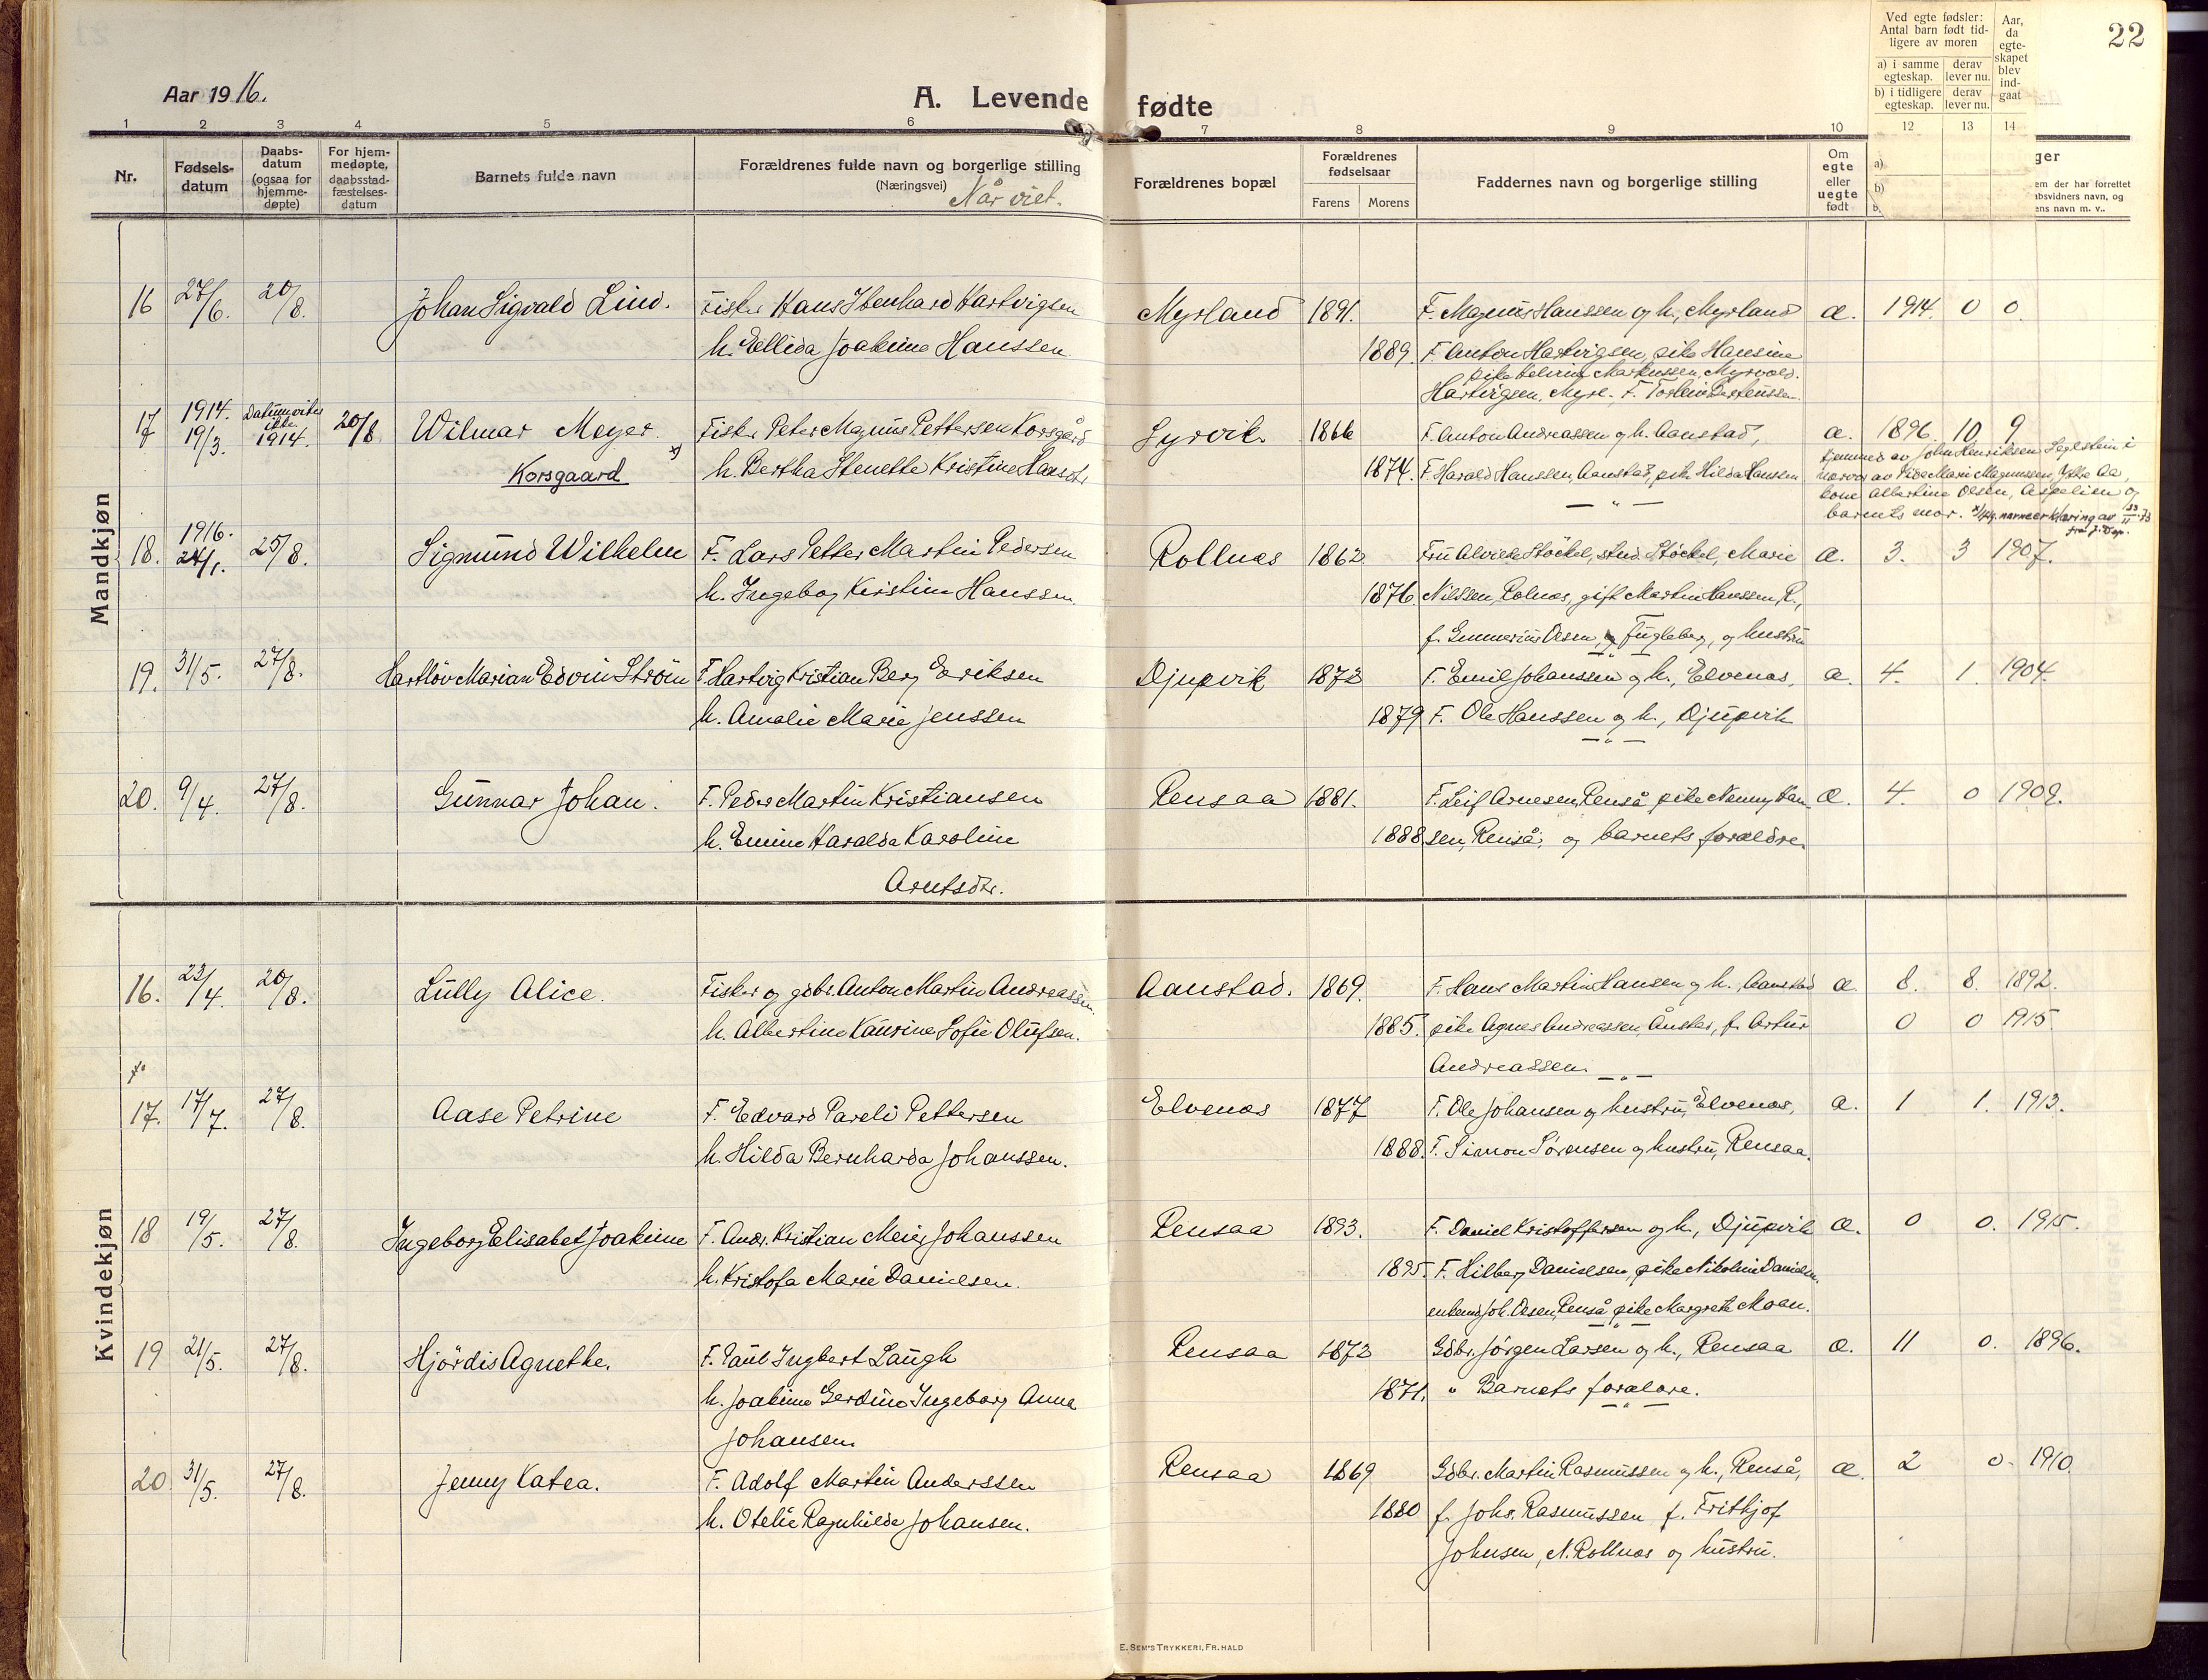 22
Aar 1916.
A. Levende fødte
1 2 3 4 5 6 7 8 9 10 12 13 14
Ved egte fødsler: Antal barn født tidligere av moren
a) i samme egteskap. derav lever nu.
b) i tidligere egteskap. derav lever nu.
Aar, da egteskapet blev indgaat
Nr.
Fødselsdatum
Daabsdatum (ogsaa for hjemmedøpte)
For hjemmedøpte, daabsstadfæstelsesdatum
Barnets fulde navn
Forældrenes fulde navn og borgerlige stilling
(Næringsvei)
Når viet.
Forældrenes bopæl
Forældrenes fødselsaar
Farens Morens
Faddernes navn og borgerlige stilling
Om egte eller uegte født
a)
b)
ger
em der har forrettet
absvidners navn, og
ens navn m. v..
Mandkjøn
16 27/6. 20/8. Johan Sigvald Lind. Fisker Hans Stenhard Hartvigsen Myrland 1891. F. Magnus Hanssen og h., Myrland æ. 1914. 0 0.
h. Ellida Joakime Hanssen 1889. F. Anton Hartvigsen, pike Hansine
Markussen, Myrvold.
Hartvigsen, Myrl.,
17 1914. 19/3. Datum vites ikke 1914. 20/8 Wilmar Meyer x) Fisker Peter Magnus Pettersen Korsgård 1866 F. Anton Andreassen og h. Aanstad, æ. 1896. 10 9
Korsgaard h. Bertha Stenette Kristine Hansdtr 1874. F. Harald Hanssen, Aanstad, pike Hilda Hanssen
— " —
hjemmed. av John Henriksen i
nærvær av Marie Magnussen,
kone Albertine Olsen, Aspelien og
barnets mor.
18. 1916. 24/1. 25/8. Sigmund Wilhelm F. Lars Petter Martin Pedersen Rollnæs 1862. Fru Stöckel, stud. Stöckel, Marie æ. 3. 3 1907.
h. Ingeborg Kristine Hanssen. 1876. Nilssen, Rolnæs, gift Martin Hanssen, R.,
f. Olsen, Fugleberg, og hustru
— " —
19. 31/5. 27/8. Hartlöv Marian Edvin Ström F. Hartvig Kristian Berg Eriksen Djupvik 1873 F. Emil Johanssen og h., Elvenæs, æ. 4. 1. 1904.
h. Amalie Marie Jenssen 1879 F. Ole Hanssen og h., Djupvik
— " —
20. 9/4. 27/8. Gunnar Johan. F. Peder Martin Kristiansen Rensaa 1881. F. Leif Arnesen, Renså, pike Nanny Han- æ. 4. 0 1909.
h. Emine Haralda Karoline 1888 sen, Renså, og barnets forældre.
Arntsdtr.
Kvindekjøn
16. 23/4. 20/8. Lully Alice. Fisker og gdbr. Anton Martin Andreassen Aanstad. 1869. F. Hans Martin Hansen og h., Aanstad æ. 8. 8. 1892.
h. Albertine Laurine Sofie Olufsen. 1885. pike Agnes Andreassen, Ånstad, f. Artur 0 0 1915
Andreassen. — " —
17. 17/7. 27/8. Aase Petrine F. Edvard Pareli Pettersen Elvenæs 1877 F. Ole Johansen og hustru, Elvenæs, æ. 1 1. 1913.
h. Hilda Bernharda Johanssen. 1888. F. Simon Sørensen og hustru, Rensaa.
18 19/5. 27/8. Ingeborg Elisabet Joakime F. Andr. Kristian Meier Johanssen Rensaa 1893. F. Daniel Kristoffersen og h., Djupvik æ. 0 0. 1915.
h. Kristofa Marie Danielsen. 1895. F. Hilberg Danielsen, pike Nikoline Danielsen.
enkem. Joh. Olsen, Renså pike Margrete Moan.
— " —
19 21/5. 27/8. Hjördis Agnethe. F. Paul Ingbert Laugh Rensaa 1873 Gdbr. Jørgen Larsen og h., Rensaa æ. 11 0. 1896.
h. Joakime Gerdine Ingeborg Anna 1871. " Barnets forældre.
Johansen — " —
20. 31/5. 27/8. Jenny Katea. F. Adolf Martin Anderssen Rensaa 1869 Gdbr. Martin Rasmussen og h., Renså, æ. 2 0 1910.
h. Otelie Ragnhilda Johansen. 1880 f. Johs. Rasmussen f. Frithjof
Johnsen, N. Rollnæs og hustru.
E. SEM'S TRYKKERI, FR. HALD